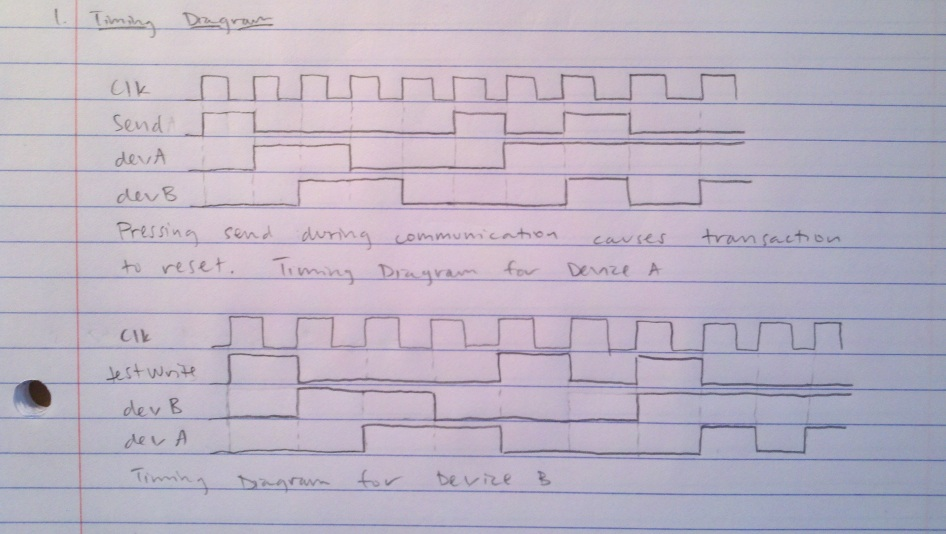 1. Timing Diagram
Clk
Send
devA
devB
Pressing send during communication causes transaction
to reset. Timing Diagram for Device A
Clk
testwrite
devB
devA
Timing Diagram for Device B